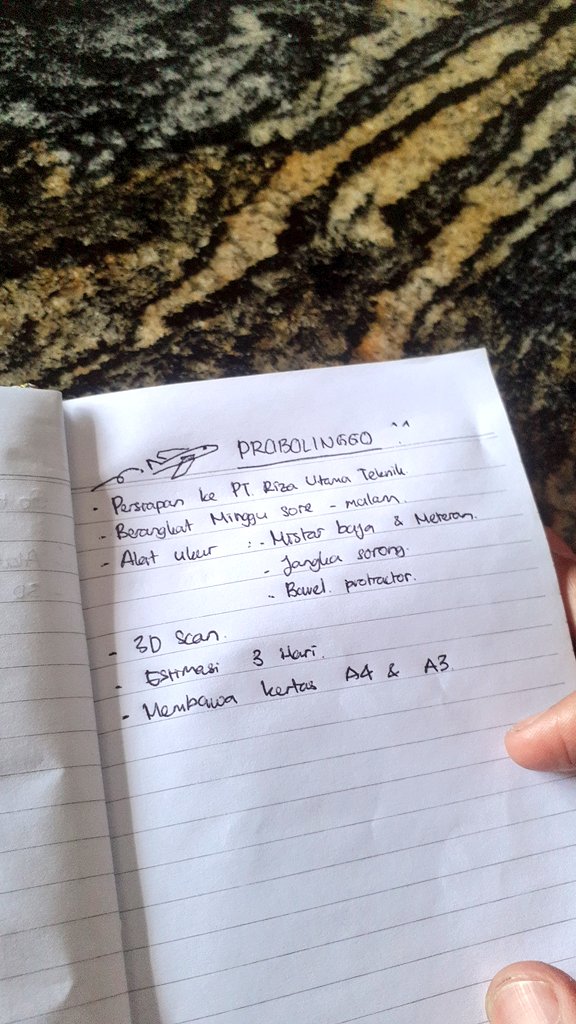 PROBOLINGGO
- Persiapan ke PT. Riza Utama Teknik
- Berangkat Minggu sore - malam.
- Alat ukur : - Mistar baja & Meteran.
- Jangka sorong.
- Bavel protractor.
- 3D Scan.
- Estimasi 3 Hari.
- Membawa kertas A4 & A3